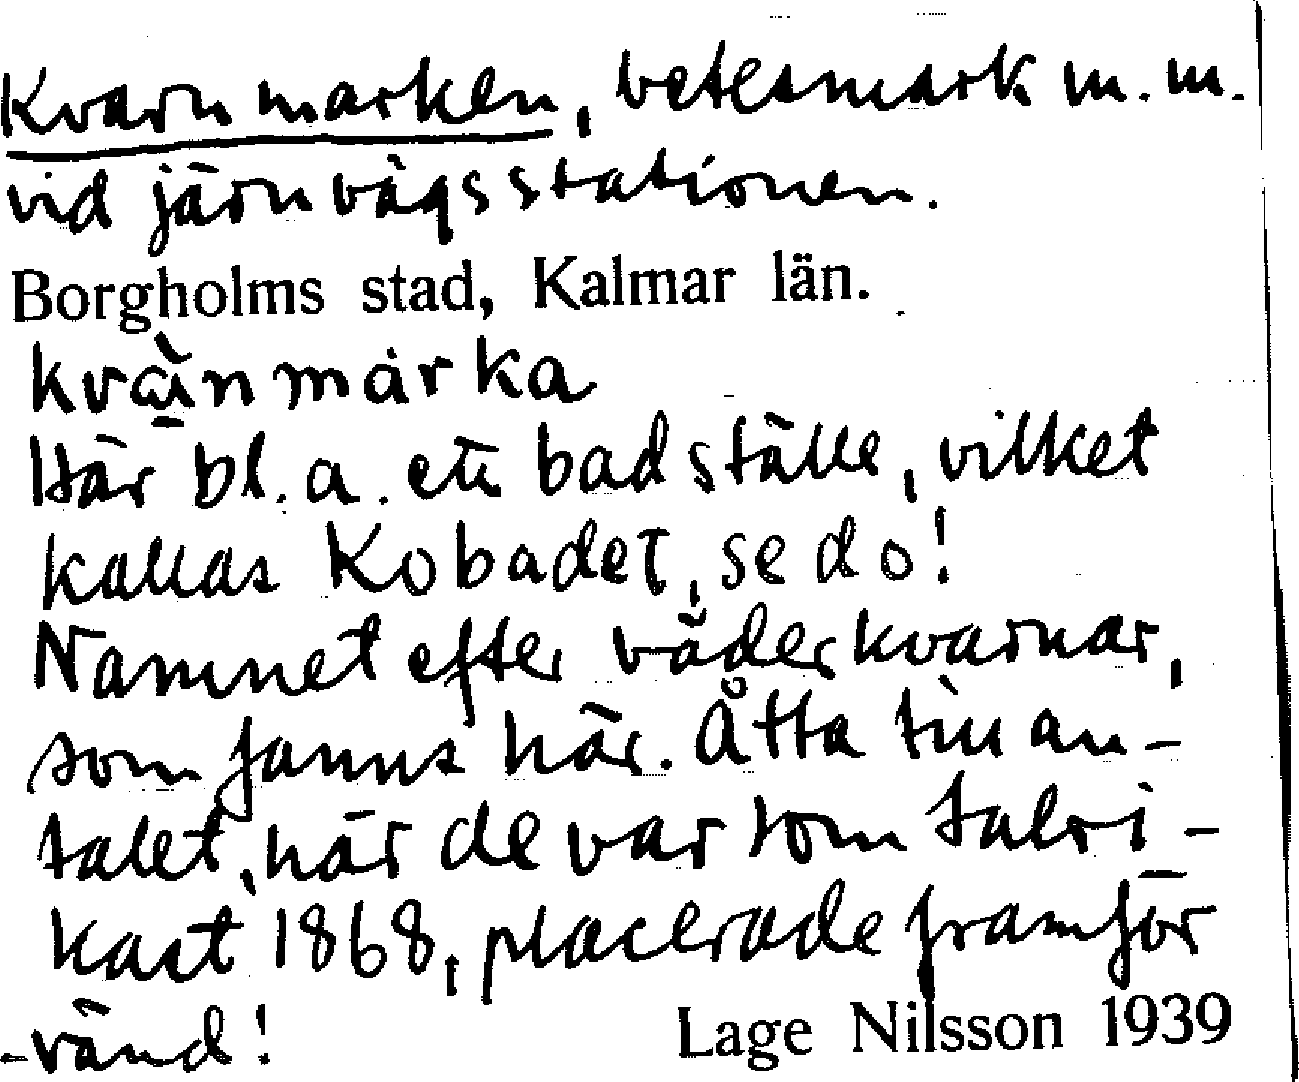 Kvarnmarken, betesmark m.m.
vid järnvägsstationen.
Borgholms stad, Kalmar län.
Här bl.a. ett badställe, vilket
kallas Kobadet, se d o!
Namnet efter väderkvarnar,
som fanns här. Åtta till an-
talet, när de var som talri-
kast 1868, placerade framför
-vänd!
Lage Nilsson 1939